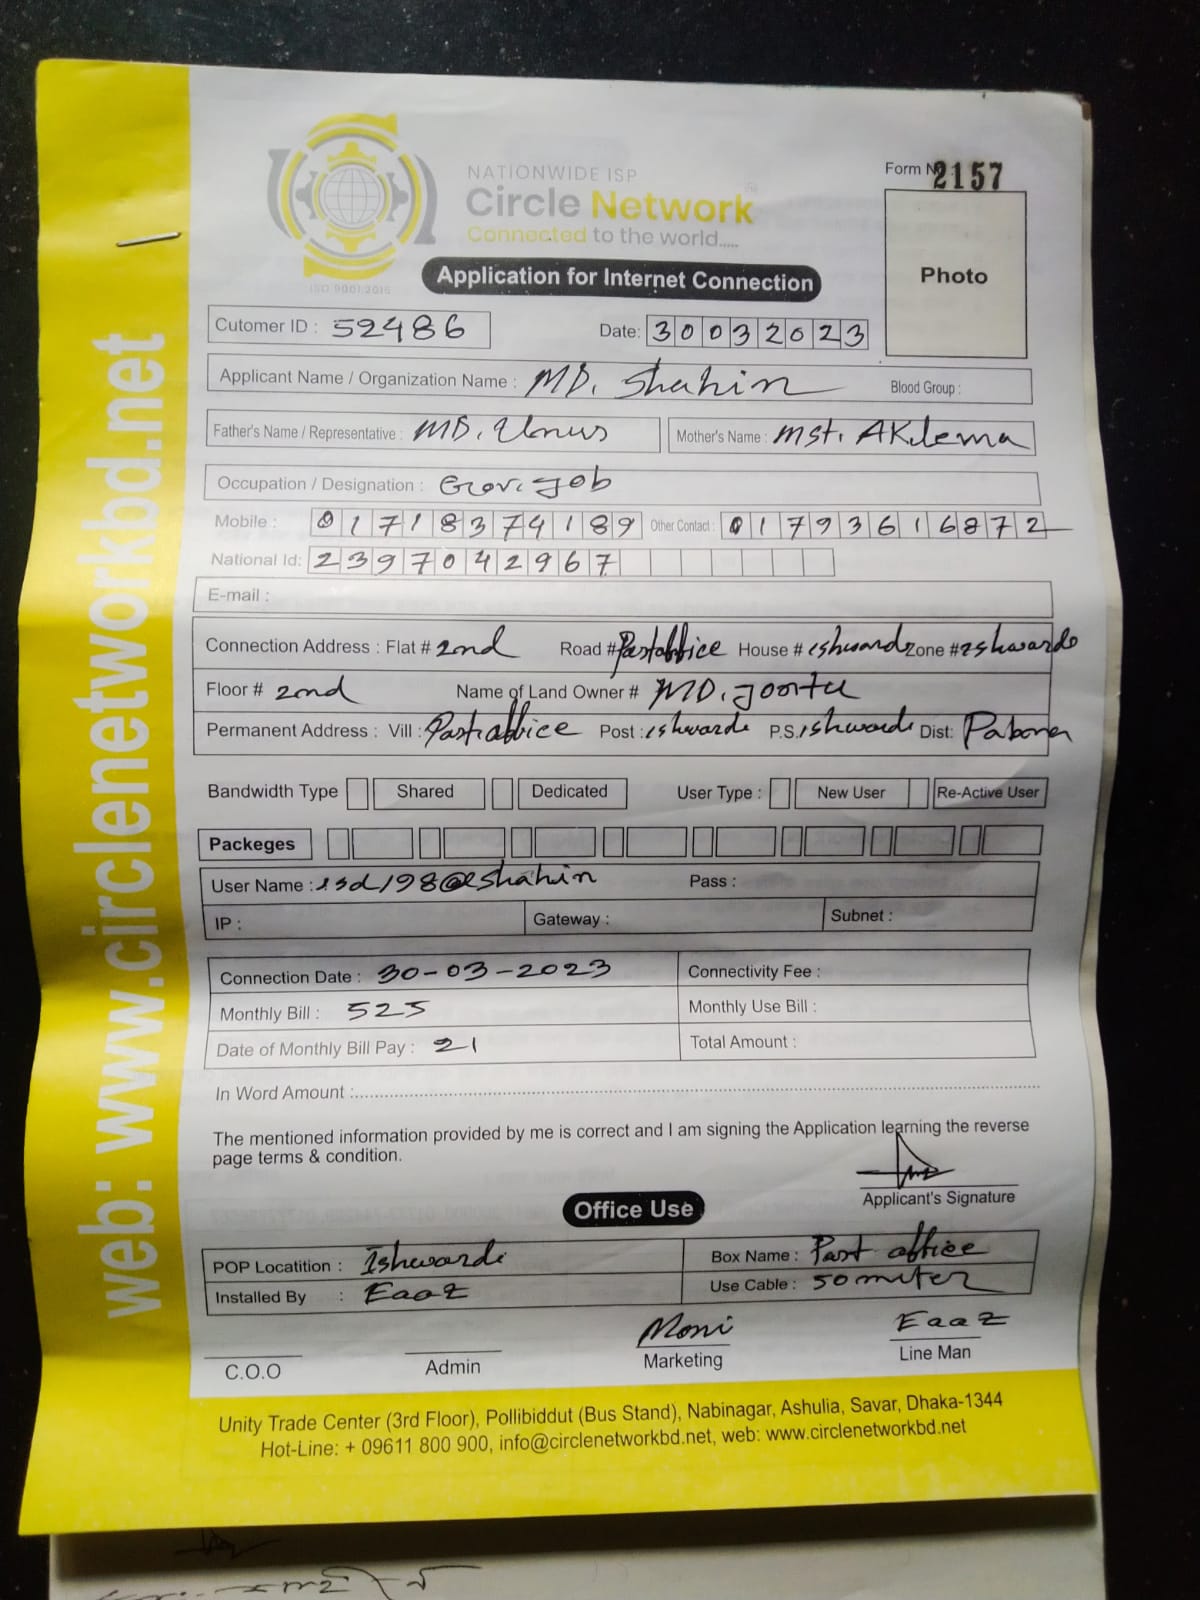 web: www.circlenetworkbd.net
NATIONWIDE ISP
Circle Network
Connected to the world.....
ISO 9001:2015
Form N 2157
Photo
Application for Internet Connection
Cutomer ID : 52486 Date: 30032023
Applicant Name / Organization Name : MD. Shahin Blood Group :
Father's Name / Representative : MD. Unus Mother's Name : Mst. AKlema
Occupation / Designation : Gov. job
Mobile : 01718374189 Other Contact : 01793616872
National Id: 2397042967
E-mail :
Connection Address : Flat # 2nd Road # Postoffice House # ishwardi Zone # ishwardi
Floor # 2nd Name of Land Owner # MD.
Permanent Address : Vill : Postoffice Post : ishwardi P.S. ishwardi Dist: Pabona
Bandwidth Type Shared Dedicated User Type : New User Re-Active User
Packeges
User Name : isd198@shahin Pass :
IP : Gateway : Subnet :
Connection Date : 30-03-2023 Connectivity Fee :
Monthly Bill : 525 Monthly Use Bill :
Date of Monthly Bill Pay : 21 Total Amount :
In Word Amount :
The mentioned information provided by me is correct and I am signing the Application learning the reverse
page terms & condition.
Applicant's Signature
Office Use
POP Locatition : Ishwardi Box Name : Post office
Installed By : Eaaz Use Cable : 50 miter
Moni Eaaz
C.O.O Admin Marketing Line Man
Unity Trade Center (3rd Floor), Pollibiddut (Bus Stand), Nabinagar, Ashulia, Savar, Dhaka-1344
Hot-Line: + 09611 800 900, info@circlenetworkbd.net, web: www.circlenetworkbd.net